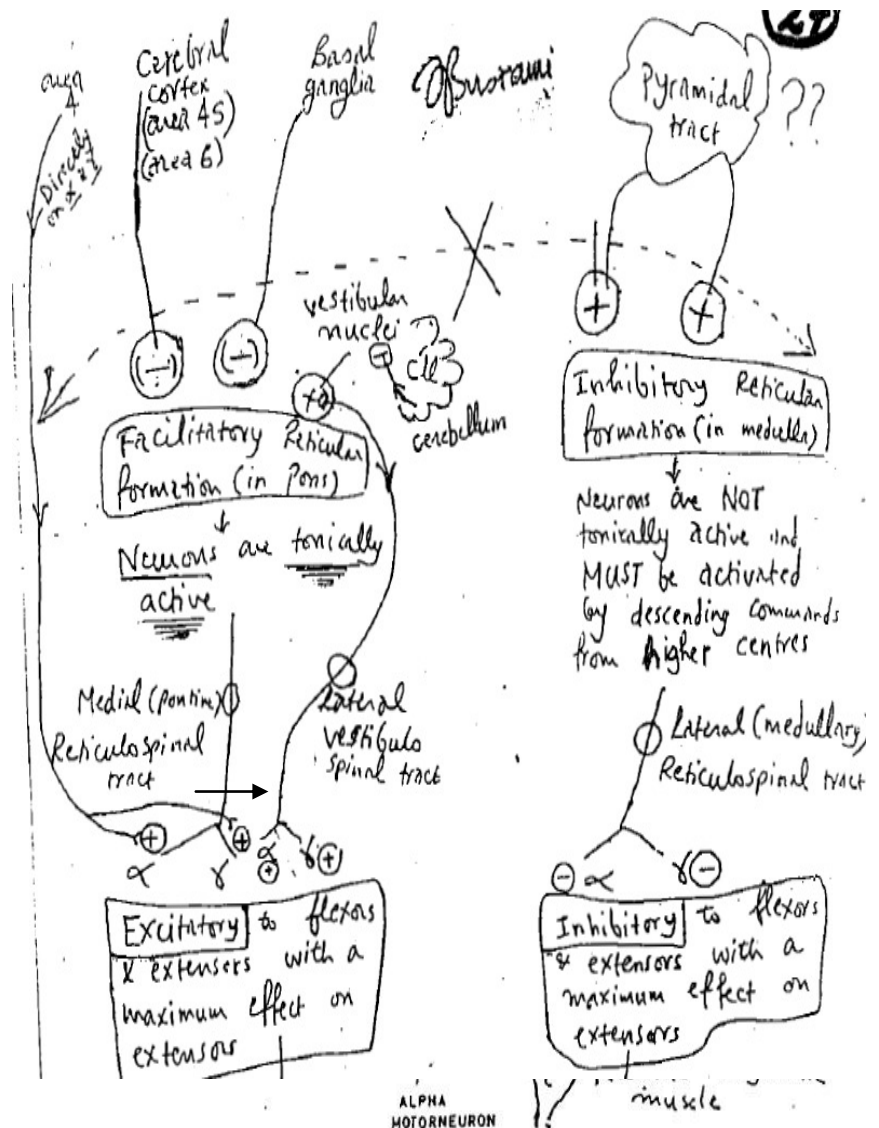 24
area
4
Directly
on α & γ
Cerebral
cortex
(area 4S)
(area 6)
Basal
ganglia
Pyramidal
tract
??
(-)
(-)
+
+
vestibular
nuclei
cerebellum
Facilitatory Reticular
formation (in Pons)
Neurons are tonically
active
Inhibitory Reticular
formation (in medulla)
Neurons are NOT
tonically active and
MUST be activated
by descending commands
from higher centres
Medial (pontine)
Reticulospinal
tract
Lateral
vestibulo
spinal tract
Lateral (medullary)
Reticulospinal tract
+
α
γ +
α +
γ +
- α
γ -
Excitatory to flexors
& extensers with a
maximum effect on
extensors
Inhibitory to flexors
& extensors with a
maximum effect on
extensors
muscle
ALPHA
MOTORNEURON